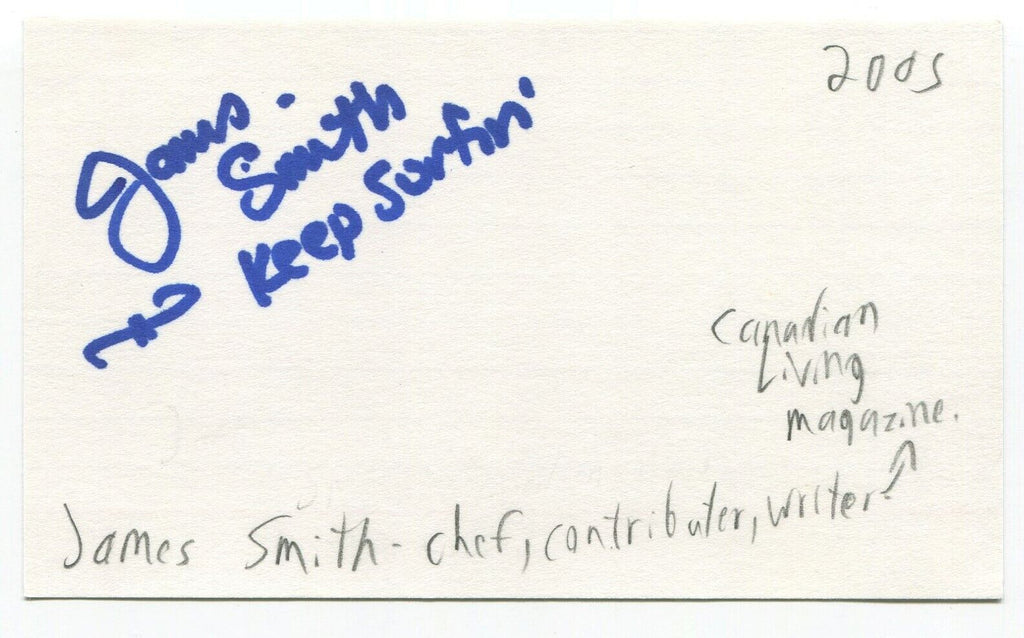 2005
James Smith
Keep Surfin'
Canadian
Living
magazine.
James Smith - chef, contributer, writer